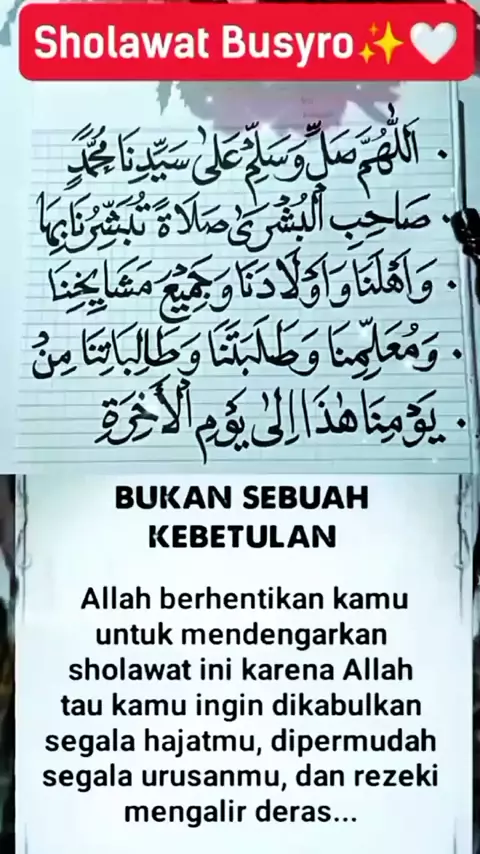 Sholawat Busyro✨🤍
. اَللّٰهُمَّ صَلِّ وَسَلِّمْ عَلٰى سَيِّدِنَا مُحَمَّدٍ
. صَاحِبِ الْبُشْرٰى صَلَاةً تُبَشِّرُنَا بِهَا
. وَاَهْلَنَا وَاَوْلَادَنَا وَجَمِيْعَ مَشَايِخِنَا
. وَمُعَلِّمِنَا وَطَلَبَتَنَا وَطَالِبَاتِنَا مِنْ
. يَوْمِنَا هٰذَا اِلٰى يَوْمِ الْأٰخِرَةِ
BUKAN SEBUAH
KEBETULAN
Allah berhentikan kamu
untuk mendengarkan
sholawat ini karena Allah
tau kamu ingin dikabulkan
segala hajatmu, dipermudah
segala urusanmu, dan rezeki
mengalir deras...